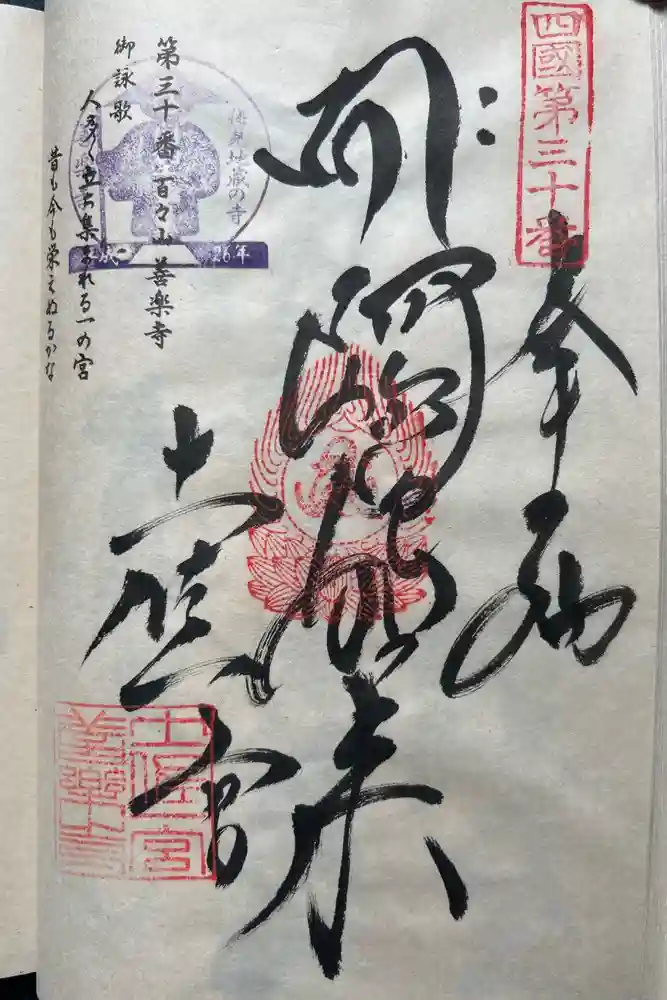 四國第三十番
奉納
阿弥陀如来
土佐一宮
第三十番 百々山 善楽寺
御詠歌
人多く立ち集まれる一の宮
昔も今も栄えぬるかな
地蔵の寺
26年
土佐一宮
善樂寺